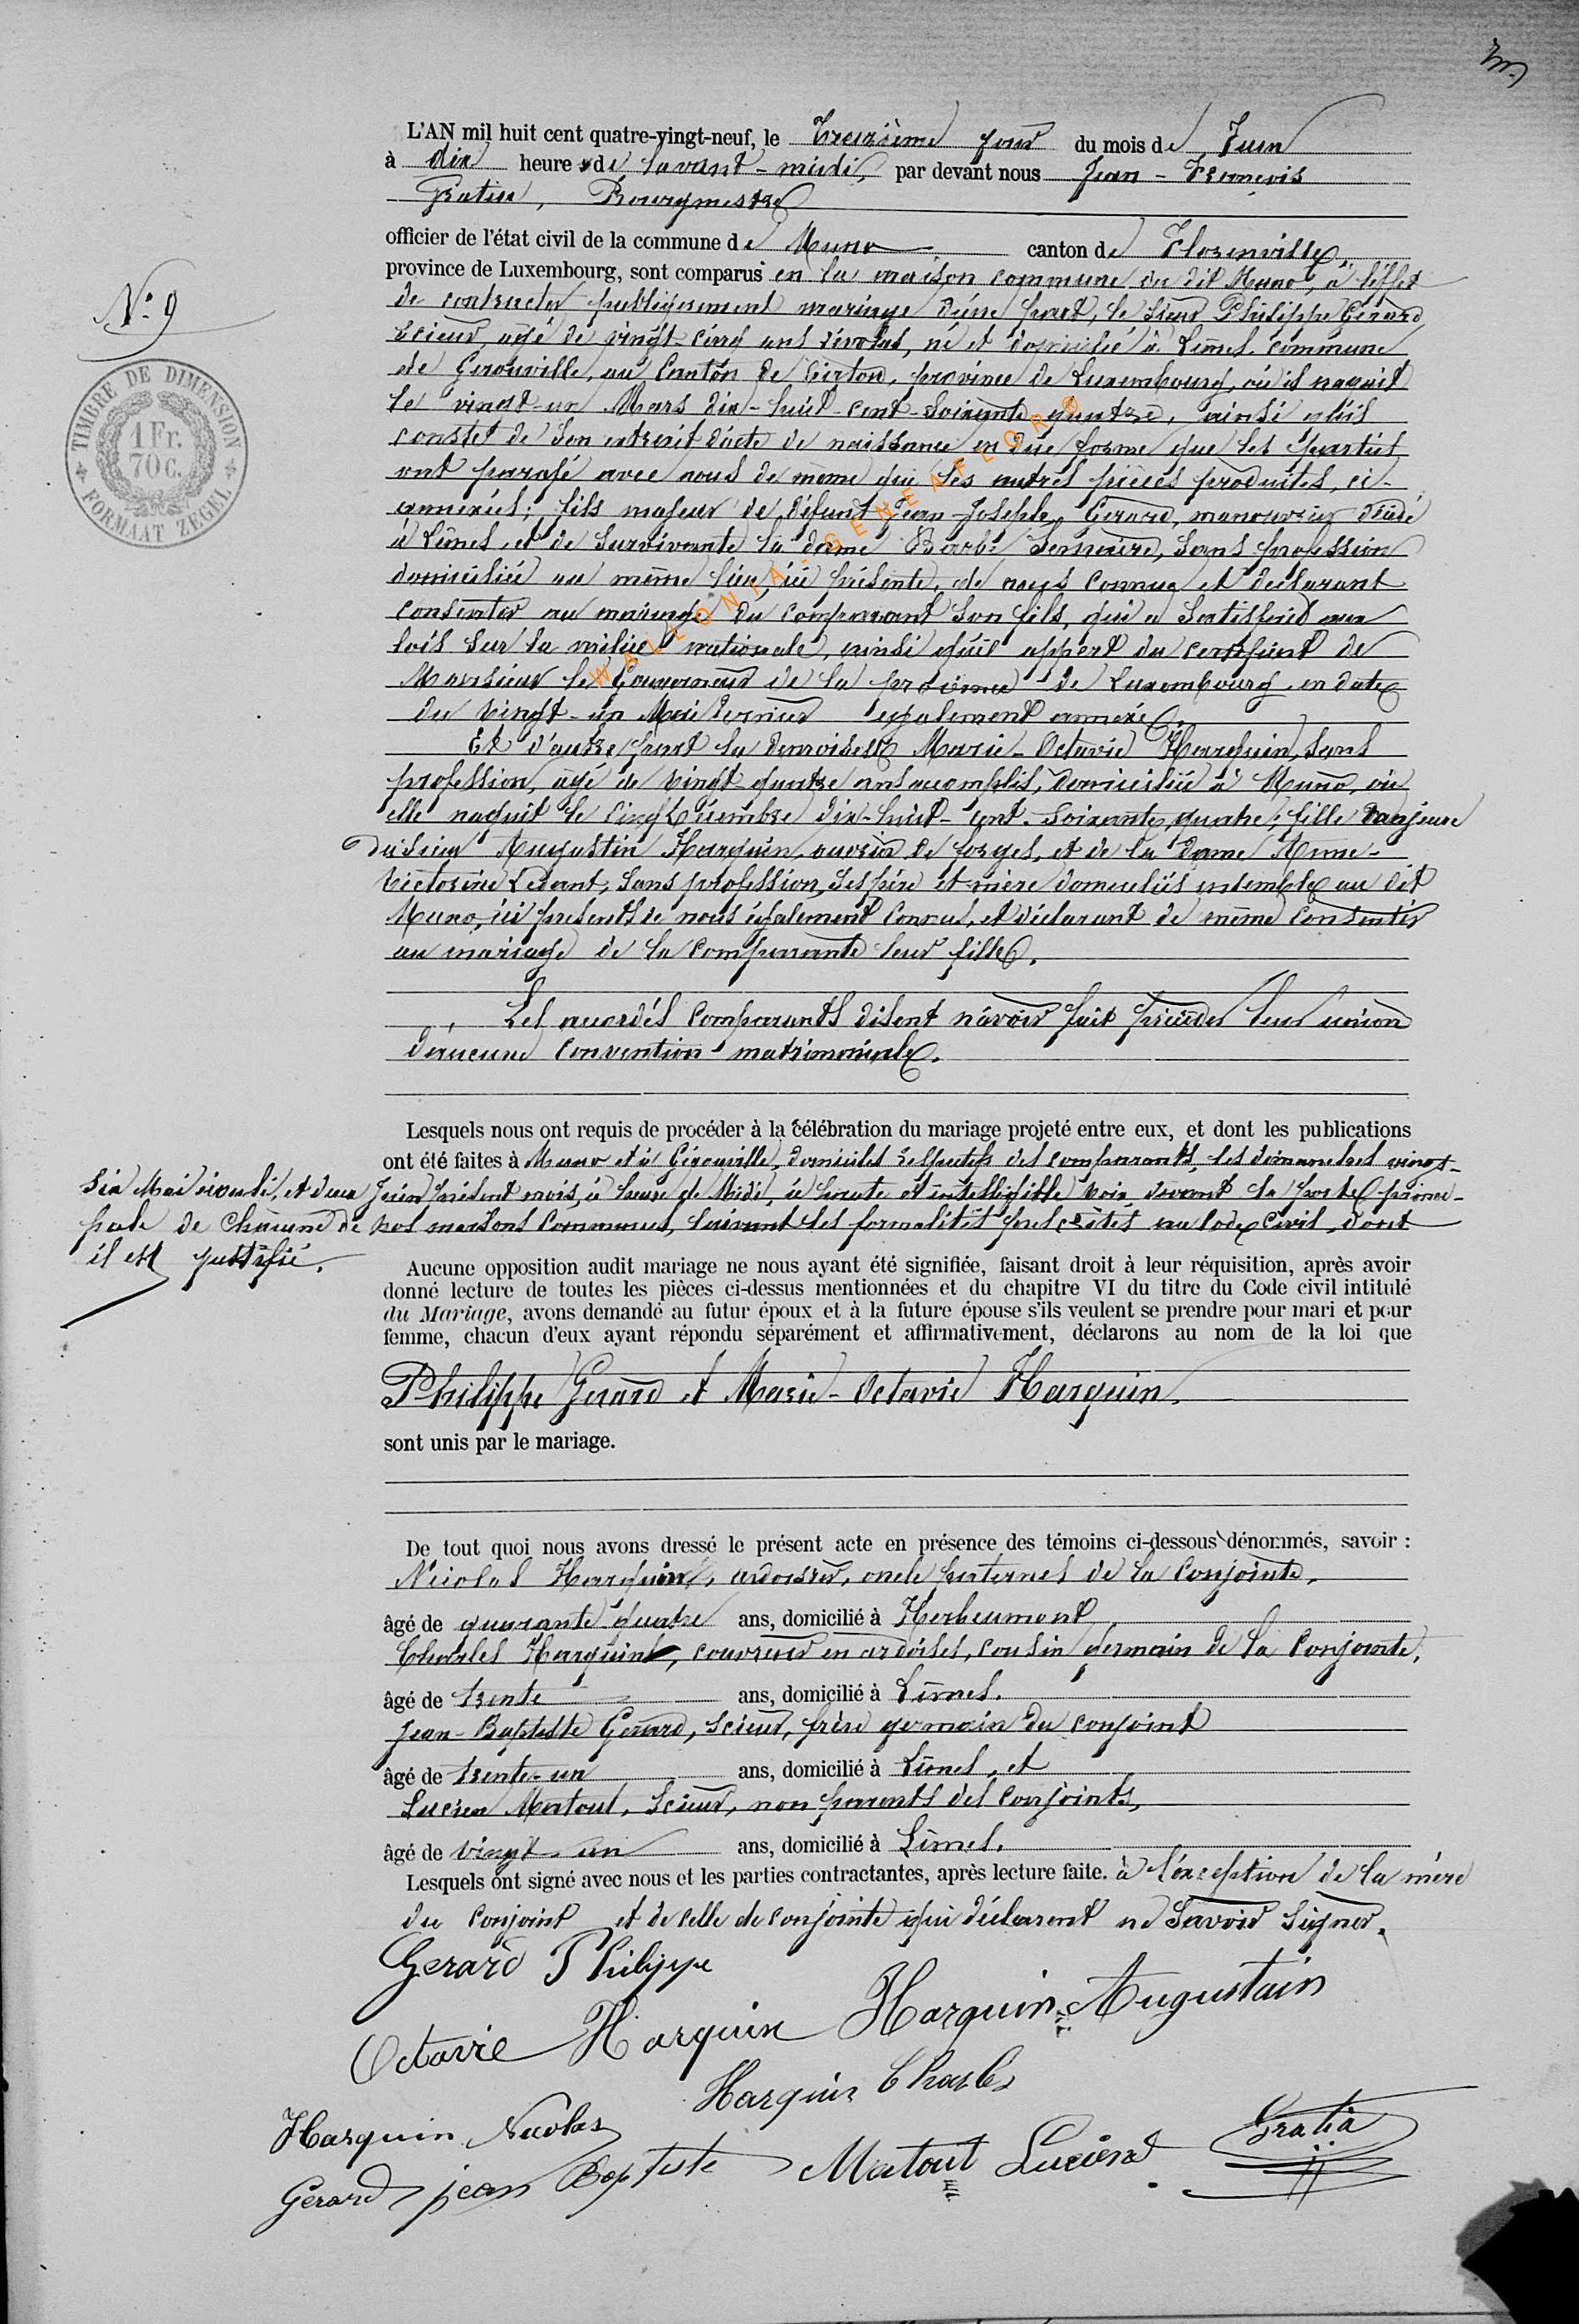 L'AN mil huit cent quatre-vingt-neuf, le Treizième jour du mois de Juin
à dix heures de l'avant-midi, par devant nous Jean-François
Gratia, Bourgmestre
officier de l'état civil de la commune de Muno canton de Florenville
province de Luxembourg, sont comparus en la maison commune du dit Muno, à l'effet
de contracter publiquement mariage d'une part, le Sieur Philippe Gérard
scieur, âgé de vingt cinq ans révolus, né et domicilié à Limes commune
N° 9
de Gérouville, au Canton de Virton, province de Luxembourg, où il naquit
le vingt-un Mars dix-huit-cent-soixante quatre, ainsi qu'il
TIMBRE DE DIMENSION
1 Fr.
70 C.
FORMAAT ZEGEL
conste de son extrait d'acte de naissance en due forme que les parties
ont parafé avec nous de même que les autres pièces produites, ci-
annexées; fils majeur de défunt Jean-Joseph Gérard, manouvrier décédé
à Limes, et de survivante la dame Barbe Lemaire, sans profession
domiciliée au même lieu, ici présente, de nous connue et déclarant
consentir au mariage du comparant son fils, qui a satisfait aux
lois sur la milice nationale, ainsi qu'il appert du certificat de
Monsieur le Gouverneur de la province de Luxembourg en date
du vingt-un Mai dernier également annexé.
WALLONIA-GENEAFLOR®
Et d'autre part la demoiselle Marie-Octavie Harquin, sans
profession, âgé de vingt-quatre ans accomplis, domiciliée à Muno, où
elle naquit le cinq Décembre dix-huit-cent-soixante quatre; fille majeure
du Sieur Augustin Harquin, ouvrier de forges, et de la Dame Anne-
Victorine Ledant, sans profession, ses père et mère domiciliés ensemble au dit
Muno, ici présents de nous également connus, et déclarant de même consentir
au mariage de la comparante leur fille.
Les accordés comparants disent n'avoir fait précéder leur union
d'aucune convention matrimoniale.
Lesquels nous ont requis de procéder à la célébration du mariage projeté entre eux, et dont les publications
ont été faites à Muno et à Gérouville, domiciles respectifs des comparants, les dimanches vingt-
six Mai écoulé, et deux Juin présent mois, à heure de Midi, à haute et intelligible voix devant la porte princi-
pale de chacune de nos maisons communes, suivant les formalités prescrites au Code Civil, dont
il est justifié.
Aucune opposition audit mariage ne nous ayant été signifiée, faisant droit à leur réquisition, après avoir
donné lecture de toutes les pièces ci-dessus mentionnées et du chapitre VI du titre du Code civil intitulé
du Mariage, avons demandé au futur époux et à la future épouse s'ils veulent se prendre pour mari et pour
femme, chacun d'eux ayant répondu séparément et affirmativement, déclarons au nom de la loi que
Philippe Gérard et Marie-Octavie Harquin.
sont unis par le mariage.
De tout quoi nous avons dressé le présent acte en présence des témoins ci-dessous dénommés, savoir :
Nicolas Harquin, ardoisier, oncle paternel de la conjointe,
âgé de quarante quatre ans, domicilié à Herbeumont
Charles Harquin, couvreur en ardoises, cousin germain de la conjointe,
âgé de trente ans, domicilié à Limes.
Jean-Baptiste Gérard, scieur, frère germain du conjoint
âgé de trente-un ans, domicilié à Limes, et
Lucien Matout, scieur, non parents des conjoints,
âgé de vingt-un ans, domicilié à Limes.
Lesquels ont signé avec nous et les parties contractantes, après lecture faite. à l'exception de la mère
du conjoint et de celle de conjointe qui déclarent ne savoir signer.
Gerard Philippe
Octavie Harquin Harquin Augustain
Harquin Charles
Harquin Nicolas
Gerard jean Baptiste Matout Lucien Gratia